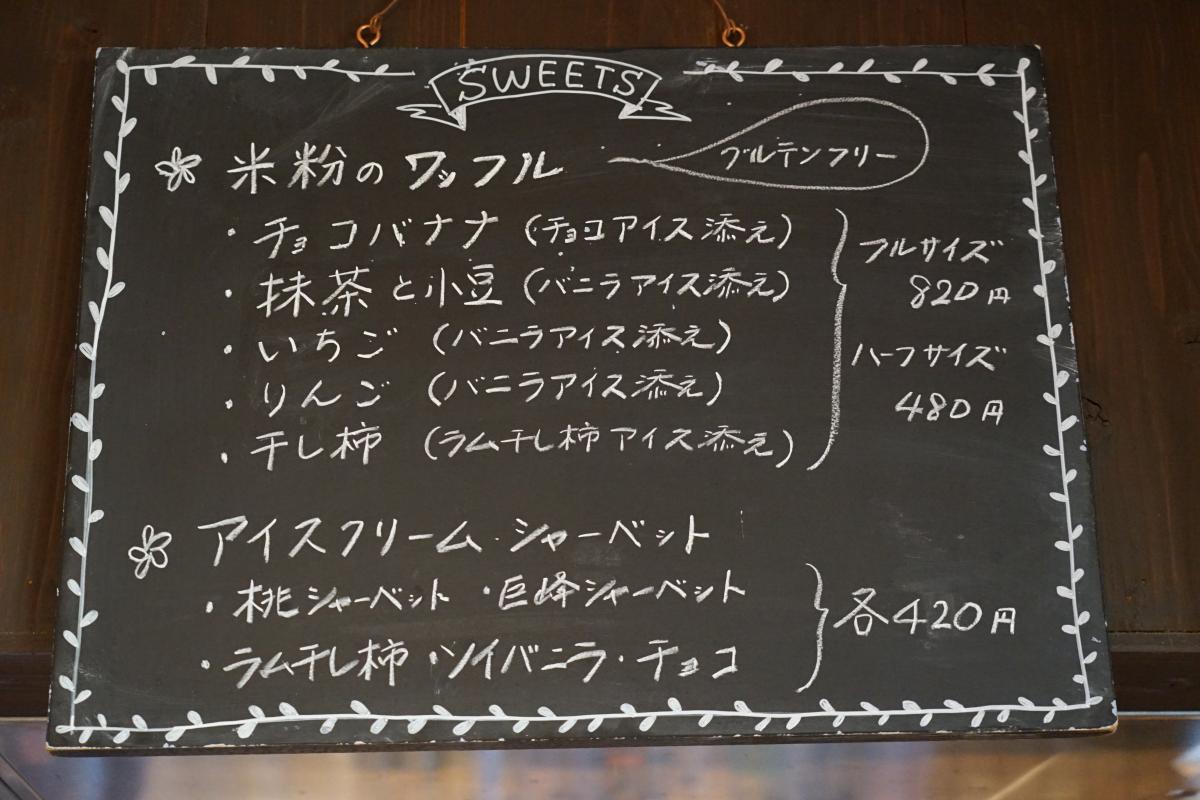 SWEETS
米粉のワッフル グルテンフリー
・チョコバナナ（チョコアイス添え）
・抹茶と小豆（バニラアイス添え）
・いちご（バニラアイス添え）
・りんご（バニラアイス添え）
・干し柿（ラム干し柿アイス添え）
フルサイズ
820円
ハーフサイズ
480円
アイスクリーム・シャーベット
・桃シャーベット ・巨峰シャーベット
・ラム干し柿・ソイバニラ・チョコ
各420円